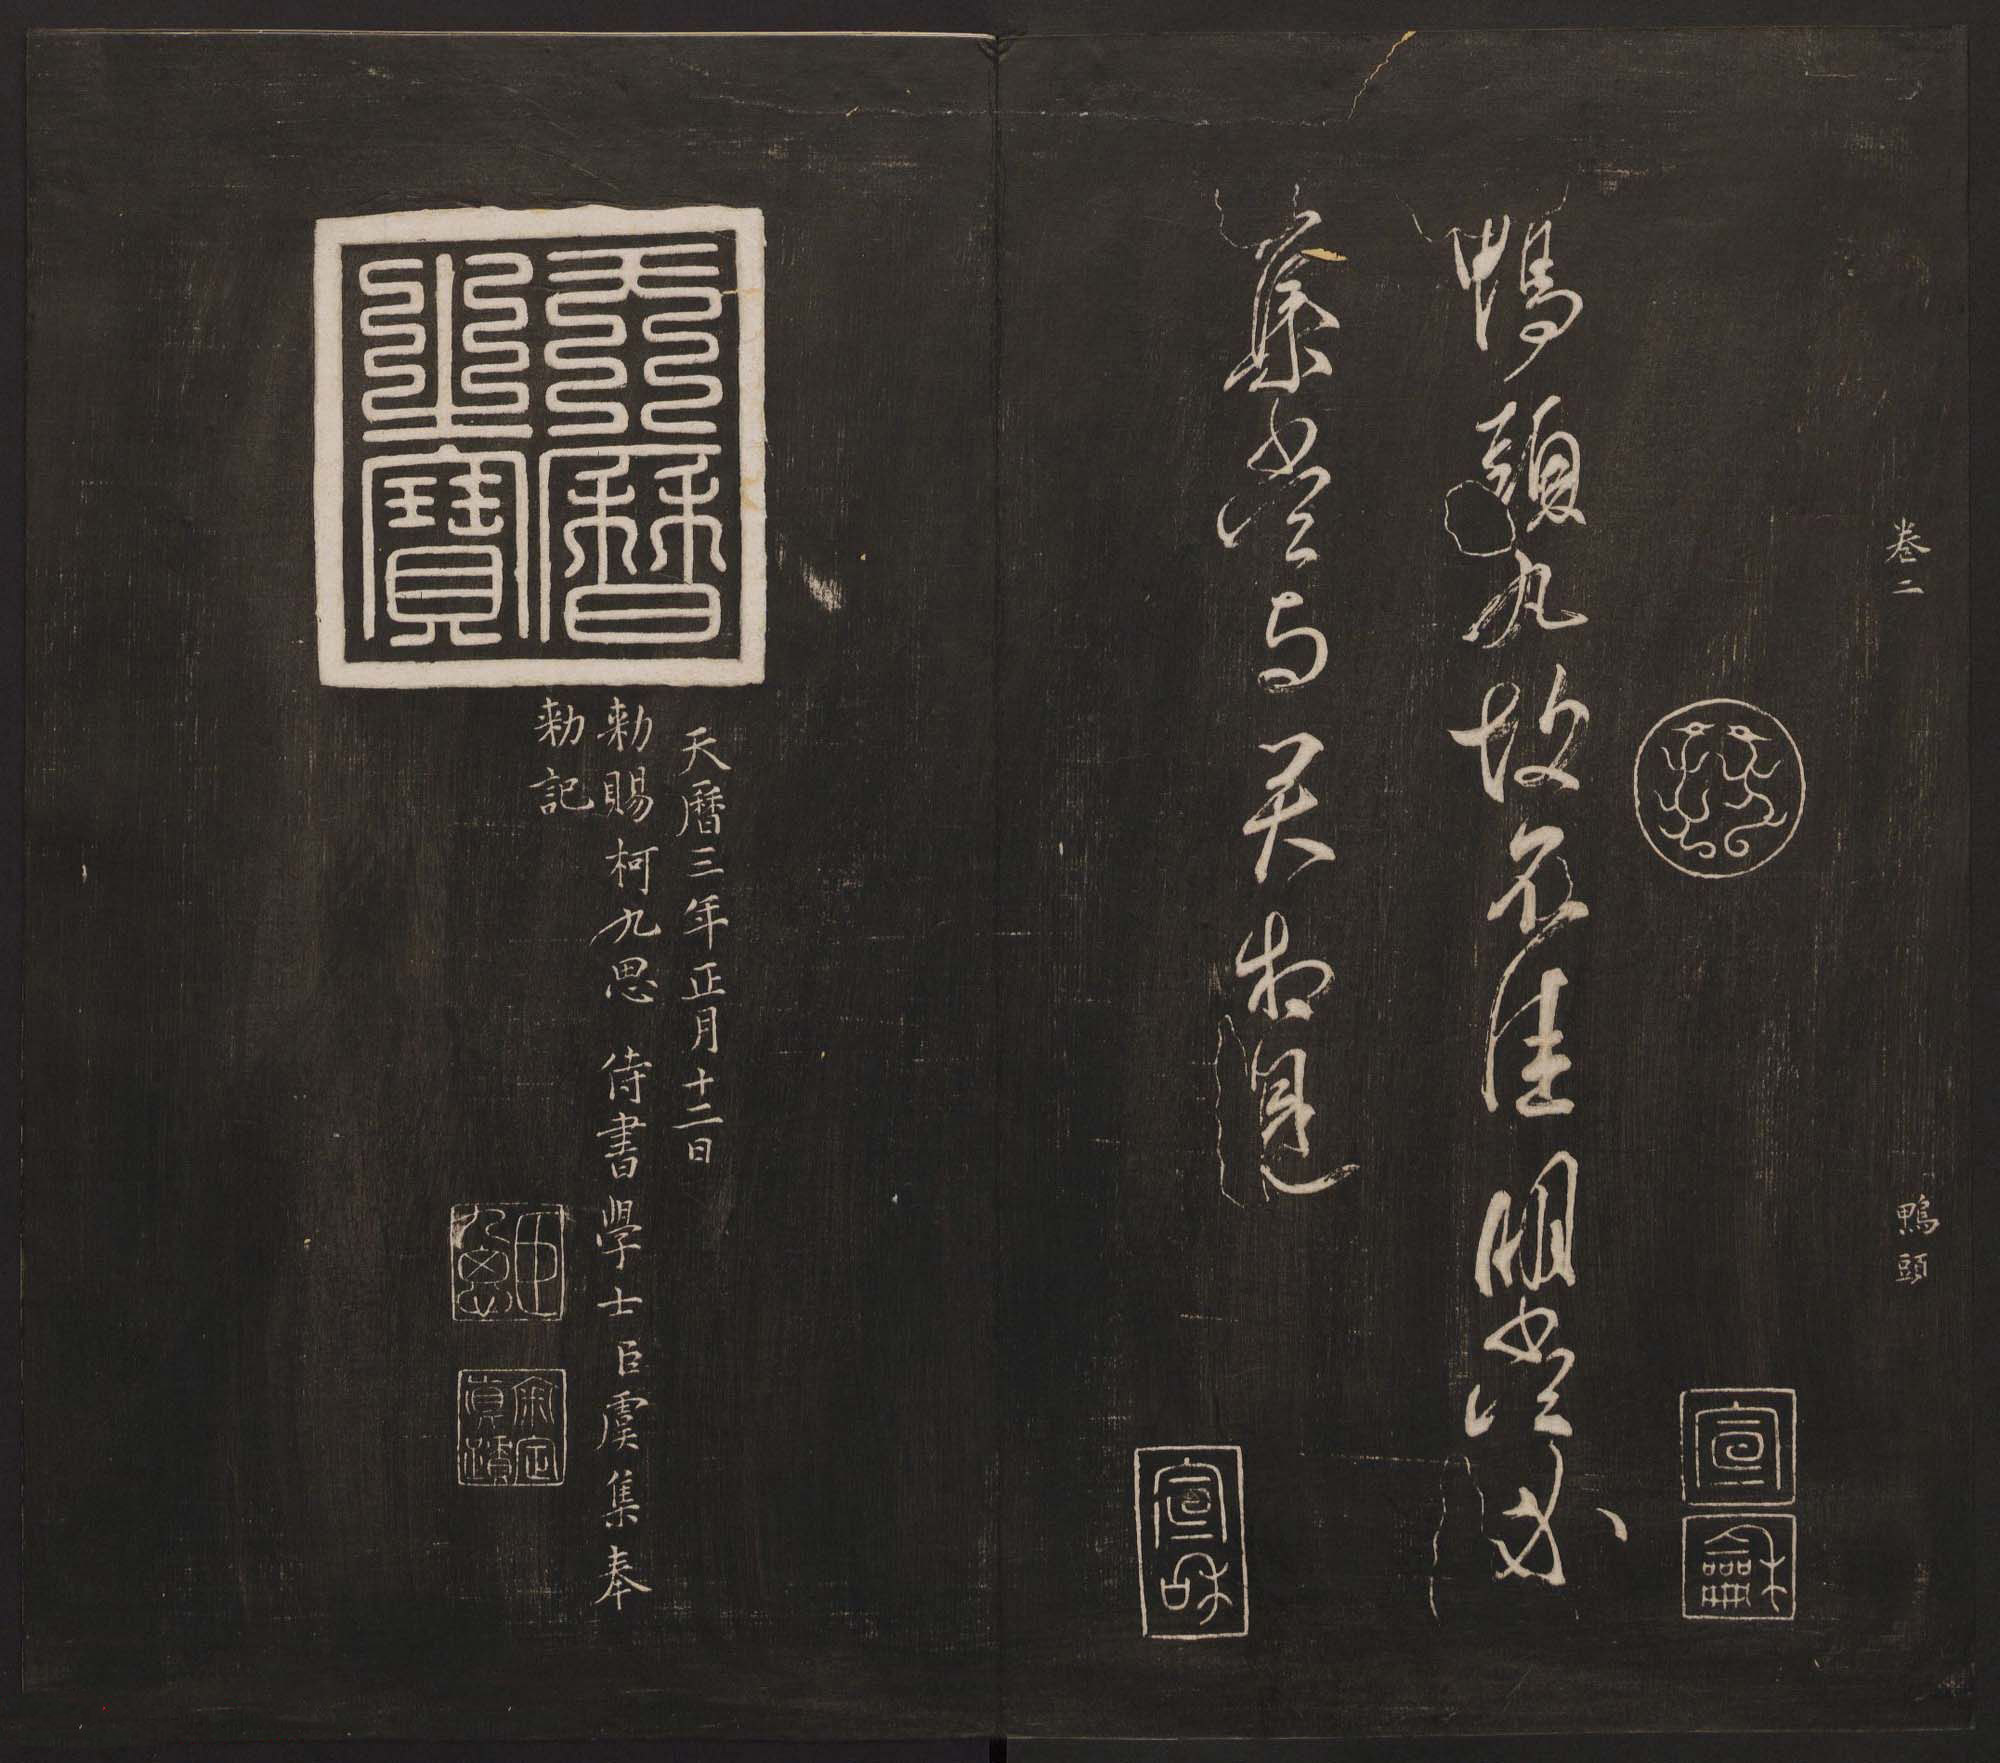 卷二 鴨頭
宣龢
鴨頭丸故不佳明當必
集當与君相見
宣和
天曆之寶
天曆三年正月十二日
勑賜柯九思 侍書學士臣虞集奉
勑記
臣九思